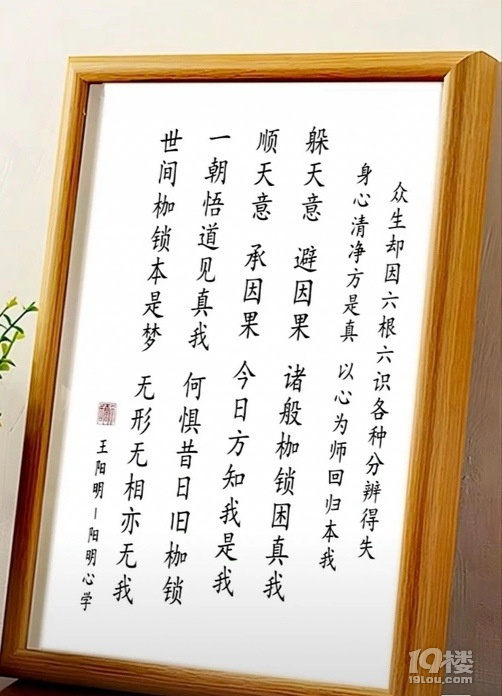 众生却因六根六识各种分辨得失
身心清净方是真 以心为师回归本我
躲天意 避因果 诸般枷锁困真我
顺天意 承因果 今日方知我是我
一朝悟道见真我 何惧昔日旧枷锁
世间枷锁本是梦 无形无相亦无我
王阳明－阳明心学
19楼
19lou.com